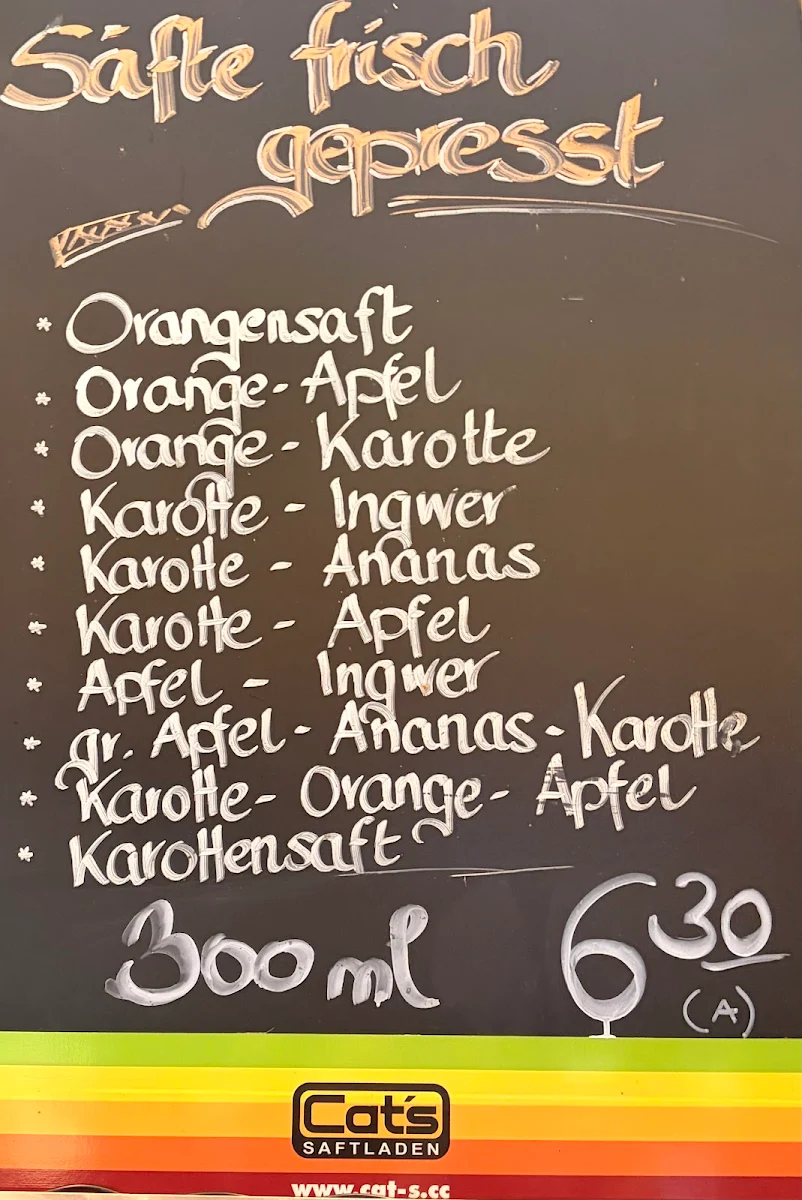 Säfte frisch
gepresst
* Orangensaft
* Orange - Apfel
* Orange - Karotte
* Karotte - Ingwer
* Karotte - Ananas
* Karotte - Apfel
* Apfel - Ingwer
* gr. Apfel - Ananas - Karotte
* Karotte - Orange - Apfel
* Karottensaft
300 ml 6 30
(A)
Cat's
SAFTLADEN
www.cat-s.cc